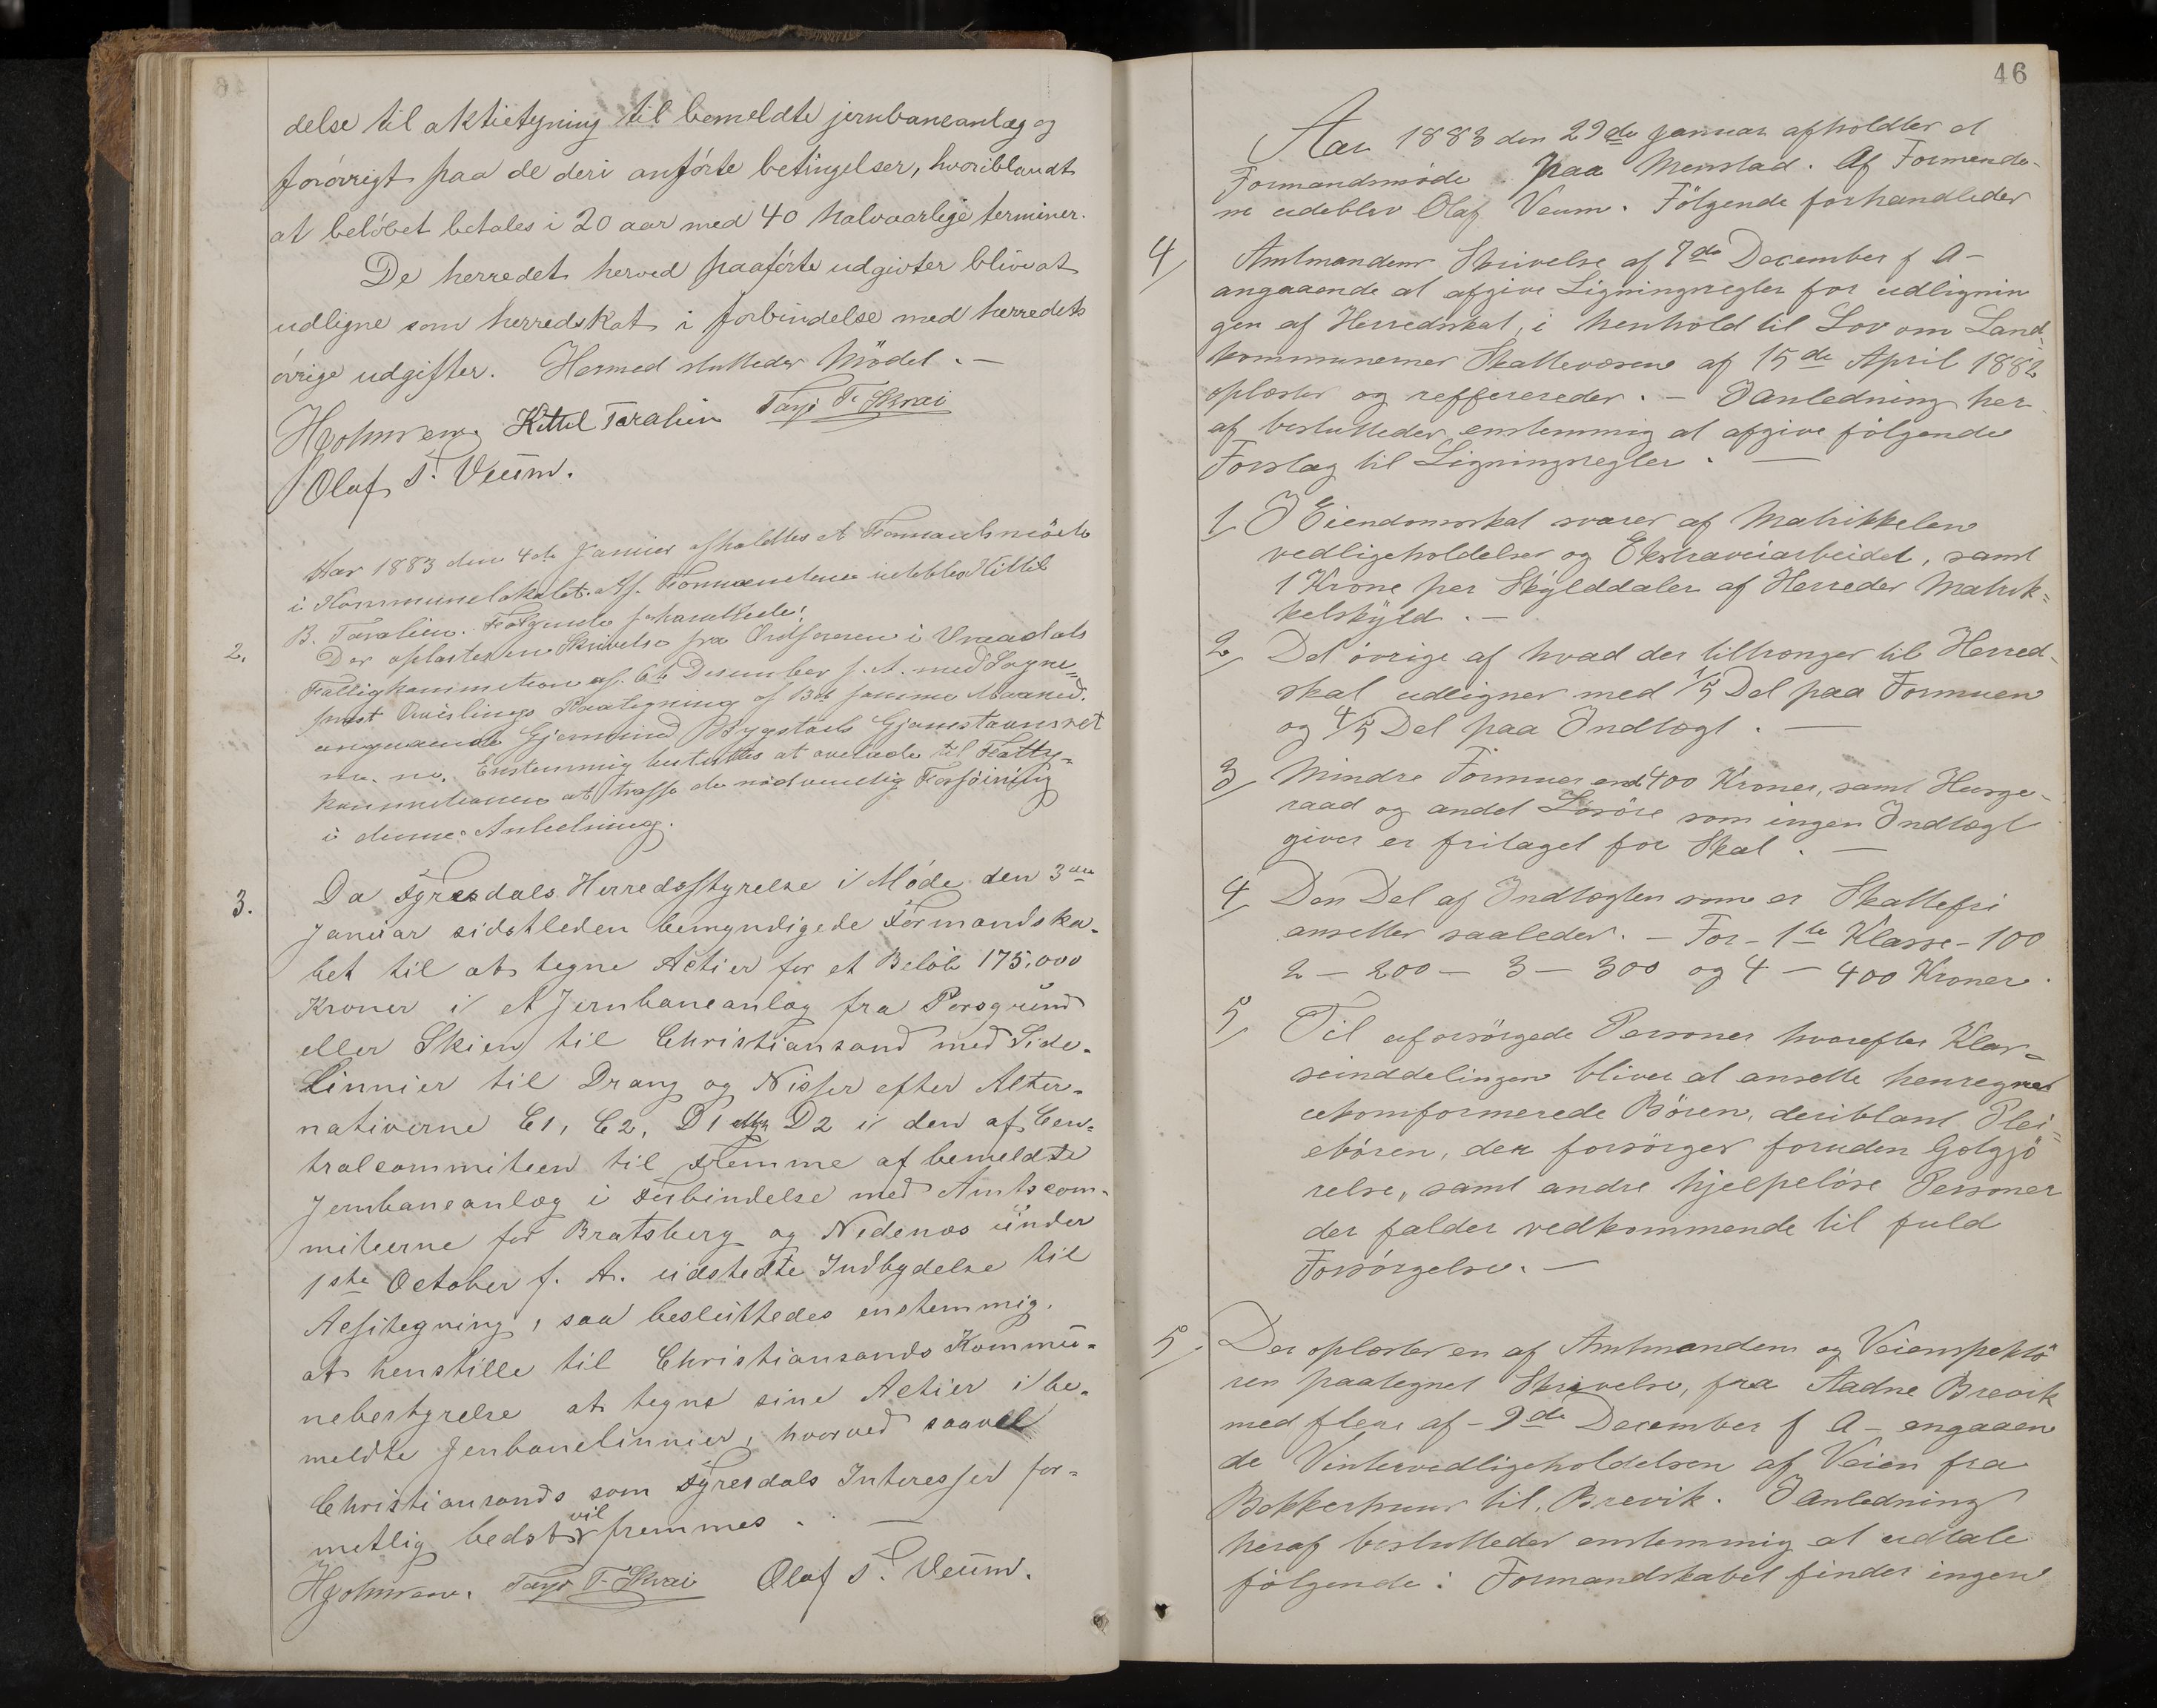 delse til aktietegning til bemeldte jernbaneanlæg og
forövrigt paa de deri anförte betingelser, hvoriblandt
at belöbet betales i 20 aar med 40 halvaarlige terminer.
De herredet herved paaförte udgivter blive at
udligne som herredskat i forbindelse med herredets
övrige udgifter. Hermed sluttedes Mödet. –
Kittel Taralien Tarje T. Skrai
Olaf T. Veum.
Aar 1883 den 4de Januar afholdtes et Formandsmöde
i Kommunelokalet. Af Formændene udeblev Kittil
B. Taralien. Fölgende forhandledes:
2. Der oplæstes en Skrivelse fra Ordföreren i Vraadals
Fattigkommition af 6te Desember f. A. med Sogne=
prest Qvislings Paategning af 13de samme Maaned.
angaaende Gjermund Bygstads Gjanstransret
m. m. Enstemmig besluttedes at overlade til Fattig=
kommitionen at træffe de nödvendig Forföining
i denne Anledning.
3. Da Tyresdals Herredsstyrelse i Möde den 3die
Januar sidstleden bemyndigede Formandska-
bet til at tegne Actier for et Belöb 175.000
Kroner i et Jernbaneanlæg fra Porsgrund
eller Skien til Christiansand med Side-
Linnier til Drang og Nisser efter Alter-
nativerne C1, C2, D1 eller D2 i den af Cen-
tralcommiteen til Fremme af bemeldte
Jernbaneanlæg i Forbindelse med Amtscom-
miteerne for Bratsberg og Nedenæs under
1ste October f. A. udstedte Indbydelse til
Actitegning, saa besluttedes enstemmig,
at henstille til Christiansands Kommu-
nebestyrelse at tegne sine Actier i be-
meldte Jenbanelinnier, hvorved saavel
Christiansands som Tyresdals Interesser for-
mentlig bedst vil fremmes. –
Tarje T. Skrai Olaf T. Veum.
46
Aar 1883 den 29de Januar afholdtes et
Formandsmöde paa Menstad. Af Formænde-
ne udeblev Olaf Veum. Fölgende forhandledes
4/ Amtmandens Skrivelse af 7de December f A –
angaaende at afgive Ligningsregler for udlignin
gen af Herredsskat, i henhold til Lov om Land-
kommunernes Skattevæsene af 15de April 1882
oplæstes og refferertedes. – I Anledning her
af besluttedes enstemmig at afgive fölgende
Forslag til Ligningsregler. –
1/ I Eiendomsskat svares af Matrikkelen
vedligeholdelses og Ekstraveiarbeidet, samt
1 Krone per Skylddaler af Herredes Matrik=
kelskyld. –
2/ Det övrige af hvad der tiltrænges til Herred-
skat udlignes med 1/5 Del paa Formuen
og 4/5 Del paa Indtægt. –
3/ Mindre Formue end 400 Kroner, samt Husge-
raad og andet Lösöre som ingen Indtægt
giver er fritaget for Skat. –
4/ Den Del af Indtægten som er Skattefri
ansettes saaledes. – For – 1ste Klasse – 100
2 – 200 – 3 – 300 og 4 – 400 Kroner.
5/ Til uforsörgede Personer hvorefter Klas=
seinddelingen bliver at ansette henregnes
ukomformerede Börn, deriblant Plei=
ebören, der forsörges foruden Golgjö
relse, samt andre hjelpelöse Personer
der falder vedkommende til fuld
Forsörgelse. –
5. Der oplæstes en af Amtmanden og Veienspektö
ren paategnet Skrivelse, fra Aadne Brevik
med flere af – 9de December f A – angaaen
de Vintervedligeholdelsen af Veien fra
Bakkerhuus til Brevik. I Anledning
heraf besluttedes enstemmig at udtale
fölgende: Formandskabet finder ingen